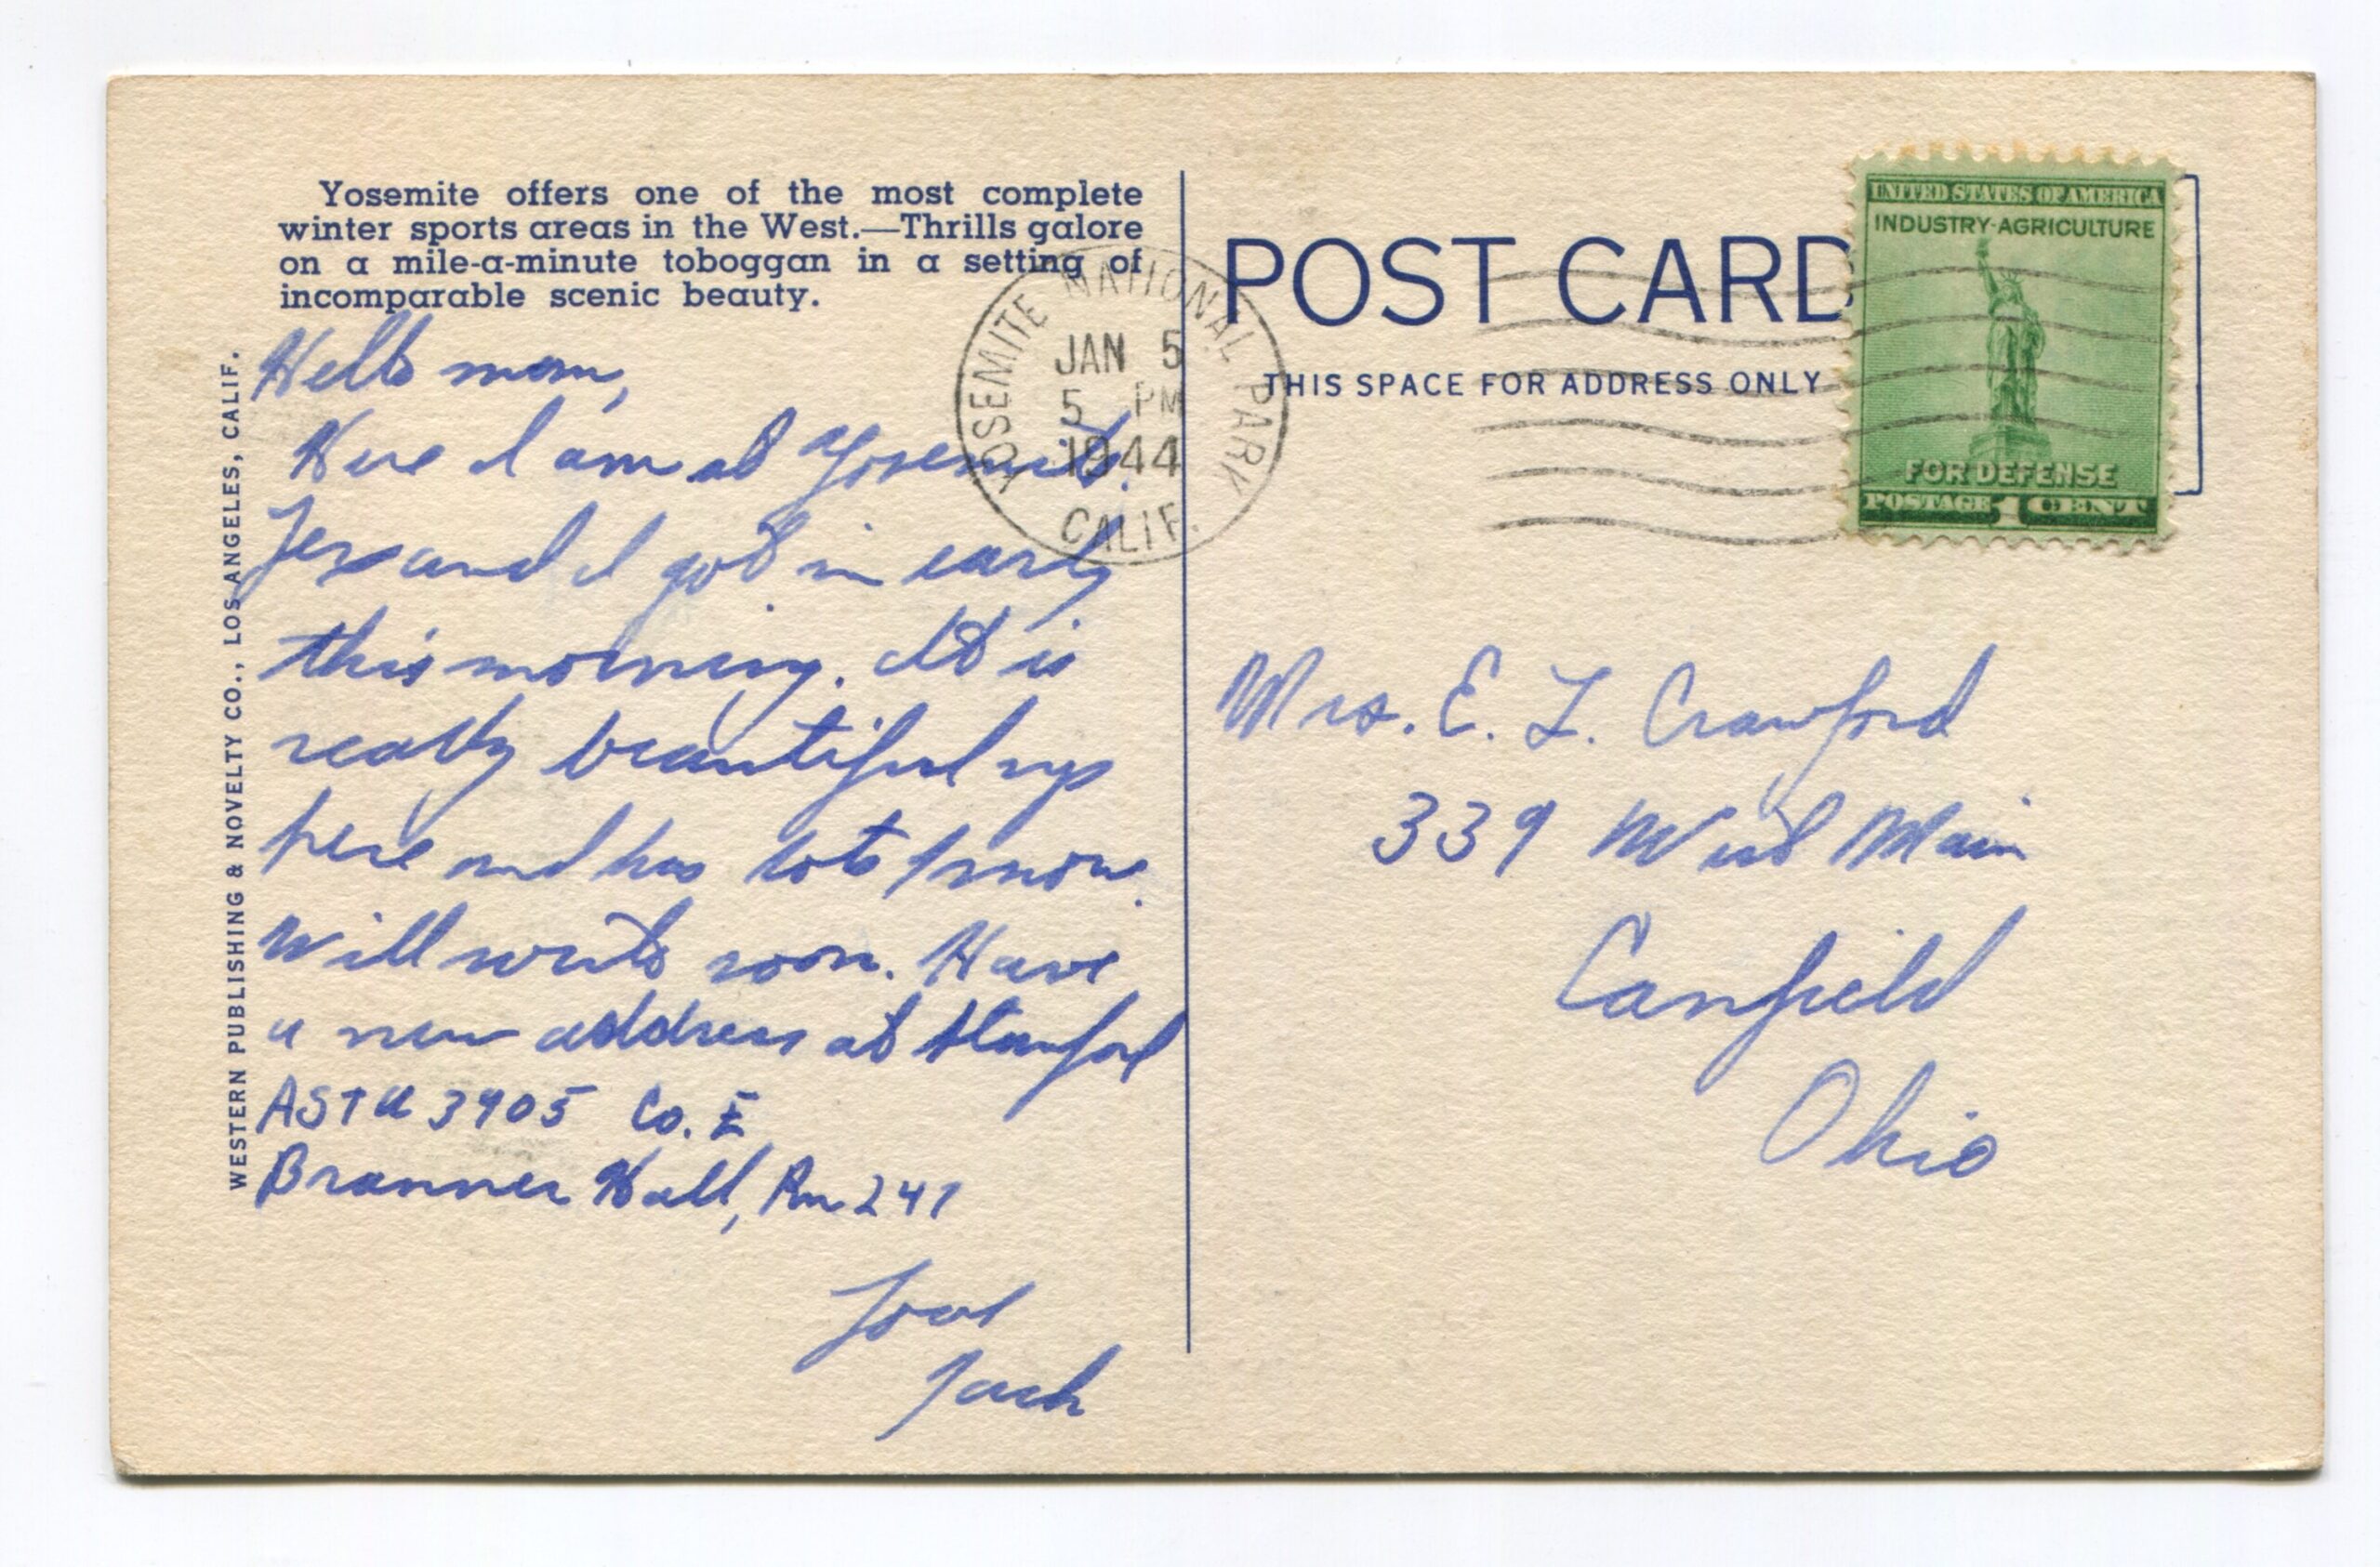 Yosemite offers one of the most complete
winter sports areas in the West.—Thrills galore
on a mile-a-minute toboggan in a setting of
incomparable scenic beauty.
WESTERN PUBLISHING & NOVELTY CO., LOS ANGELES, CALIF.
Hello mom,
Here I am at Yosemite.
Jess and I got in early
this morning. It is
really beautiful up
here and has lots snow.
Will write soon. Have
a new address at Stanford
ASTU 3905 Co. E
Branner Hall, Rm 247
Love
Jack
YOSEMITE NATIONAL PARK
JAN 5
5 PM
1944
CALIF.
POST CARD
THIS SPACE FOR ADDRESS ONLY
UNITED STATES OF AMERICA
INDUSTRY-AGRICULTURE
FOR DEFENSE
POSTAGE 1 CENT
Mrs. E. L. Crawford
339 West Main
Canfield
Ohio